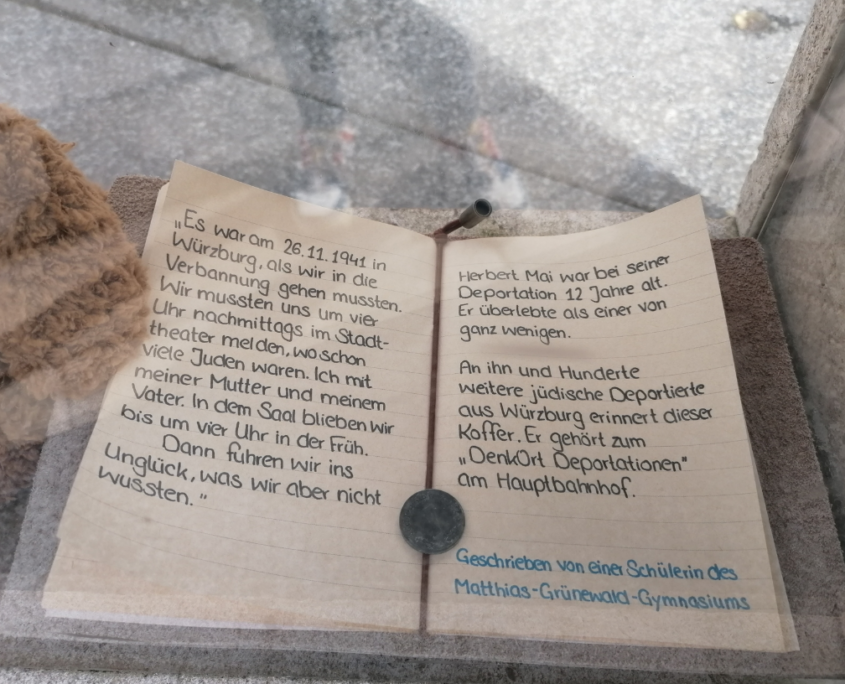 „Es war am 26.11.1941 in
Würzburg, als wir in die
Verbannung gehen mussten.
Wir mussten uns um vier
Uhr nachmittags im Stadt-
theater melden, wo schon
viele Juden waren. Ich mit
meiner Mutter und meinem
Vater. In dem Saal blieben wir
bis um vier Uhr in der Früh.
Dann fuhren wir ins
Unglück, was wir aber nicht
wussten."
Herbert Mai war bei seiner
Deportation 12 Jahre alt.
Er überlebte als einer von
ganz wenigen.
An ihn und Hunderte
weitere jüdische Deportierte
aus Würzburg erinnert dieser
Koffer. Er gehört zum
„DenkOrt Deportationen"
am Hauptbahnhof.
Geschrieben von einer Schülerin des
Matthias-Grünewald-Gymnasiums